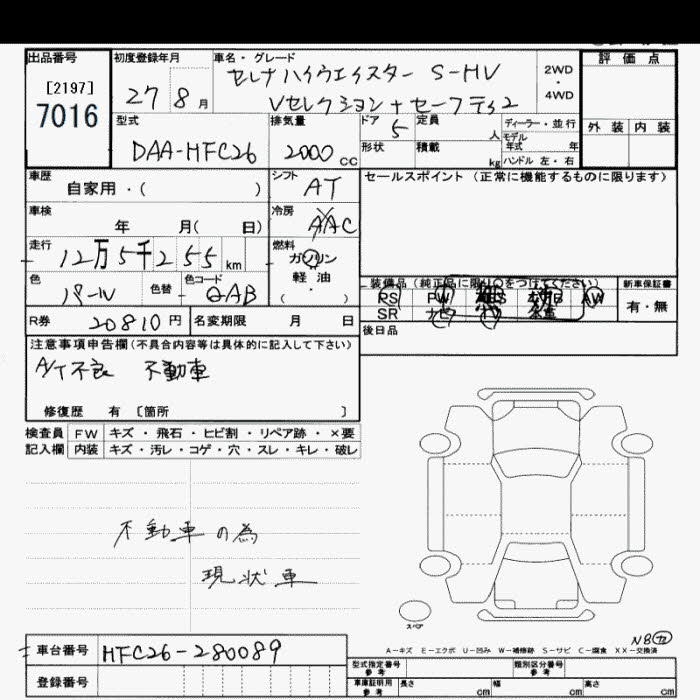 出品番号
[2197]
7016
初度登録年月
27 8 月
車名・グレード
セレナハイウェイスター S-HV
Vセレクション+セーフティ2
2WD
・
4WD
評価点
外装 内装
型式
DAA-HFC26
排気量
2000 CC
ドア 5
定員 人
形状
積載 kg
ディーラー・並行
モデル年式 年
ハンドル 左・右
車歴
自家用・( )
シフト AT
セールスポイント(正常に機能するものに限ります)
車検
年 月( 日)
冷房 AAC
走行
12万5千255 km
燃料
ガソリン
軽油
・
( )
色
パール
色替
色コード
QAB
装備品(純正品に限り○をつけてください)
PS PW AW
SR ナビ
新車保証書
有・無
R券 20810 円
名変期限 月 日
後日品
注意事項申告欄(不具合内容等は具体的に記入して下さい)
A/T不良 不動車
修復歴 有 [箇所 ]
検査員 FW キズ・飛石・ヒビ割・リペア跡・×要
記入欄 内装 キズ・汚レ・コゲ・穴・スレ・キレ・破レ
不動車の為
現状車
スペア
A-キズ E-エクボ U-凹み W-補修跡 S-サビ C-腐食 XX-交換済
車台番号 HFC26-280089
登録番号
型式指定番号
参考
類別区分番号
参考
車庫証明用
参考
長さ cm 幅 cm 高さ cm